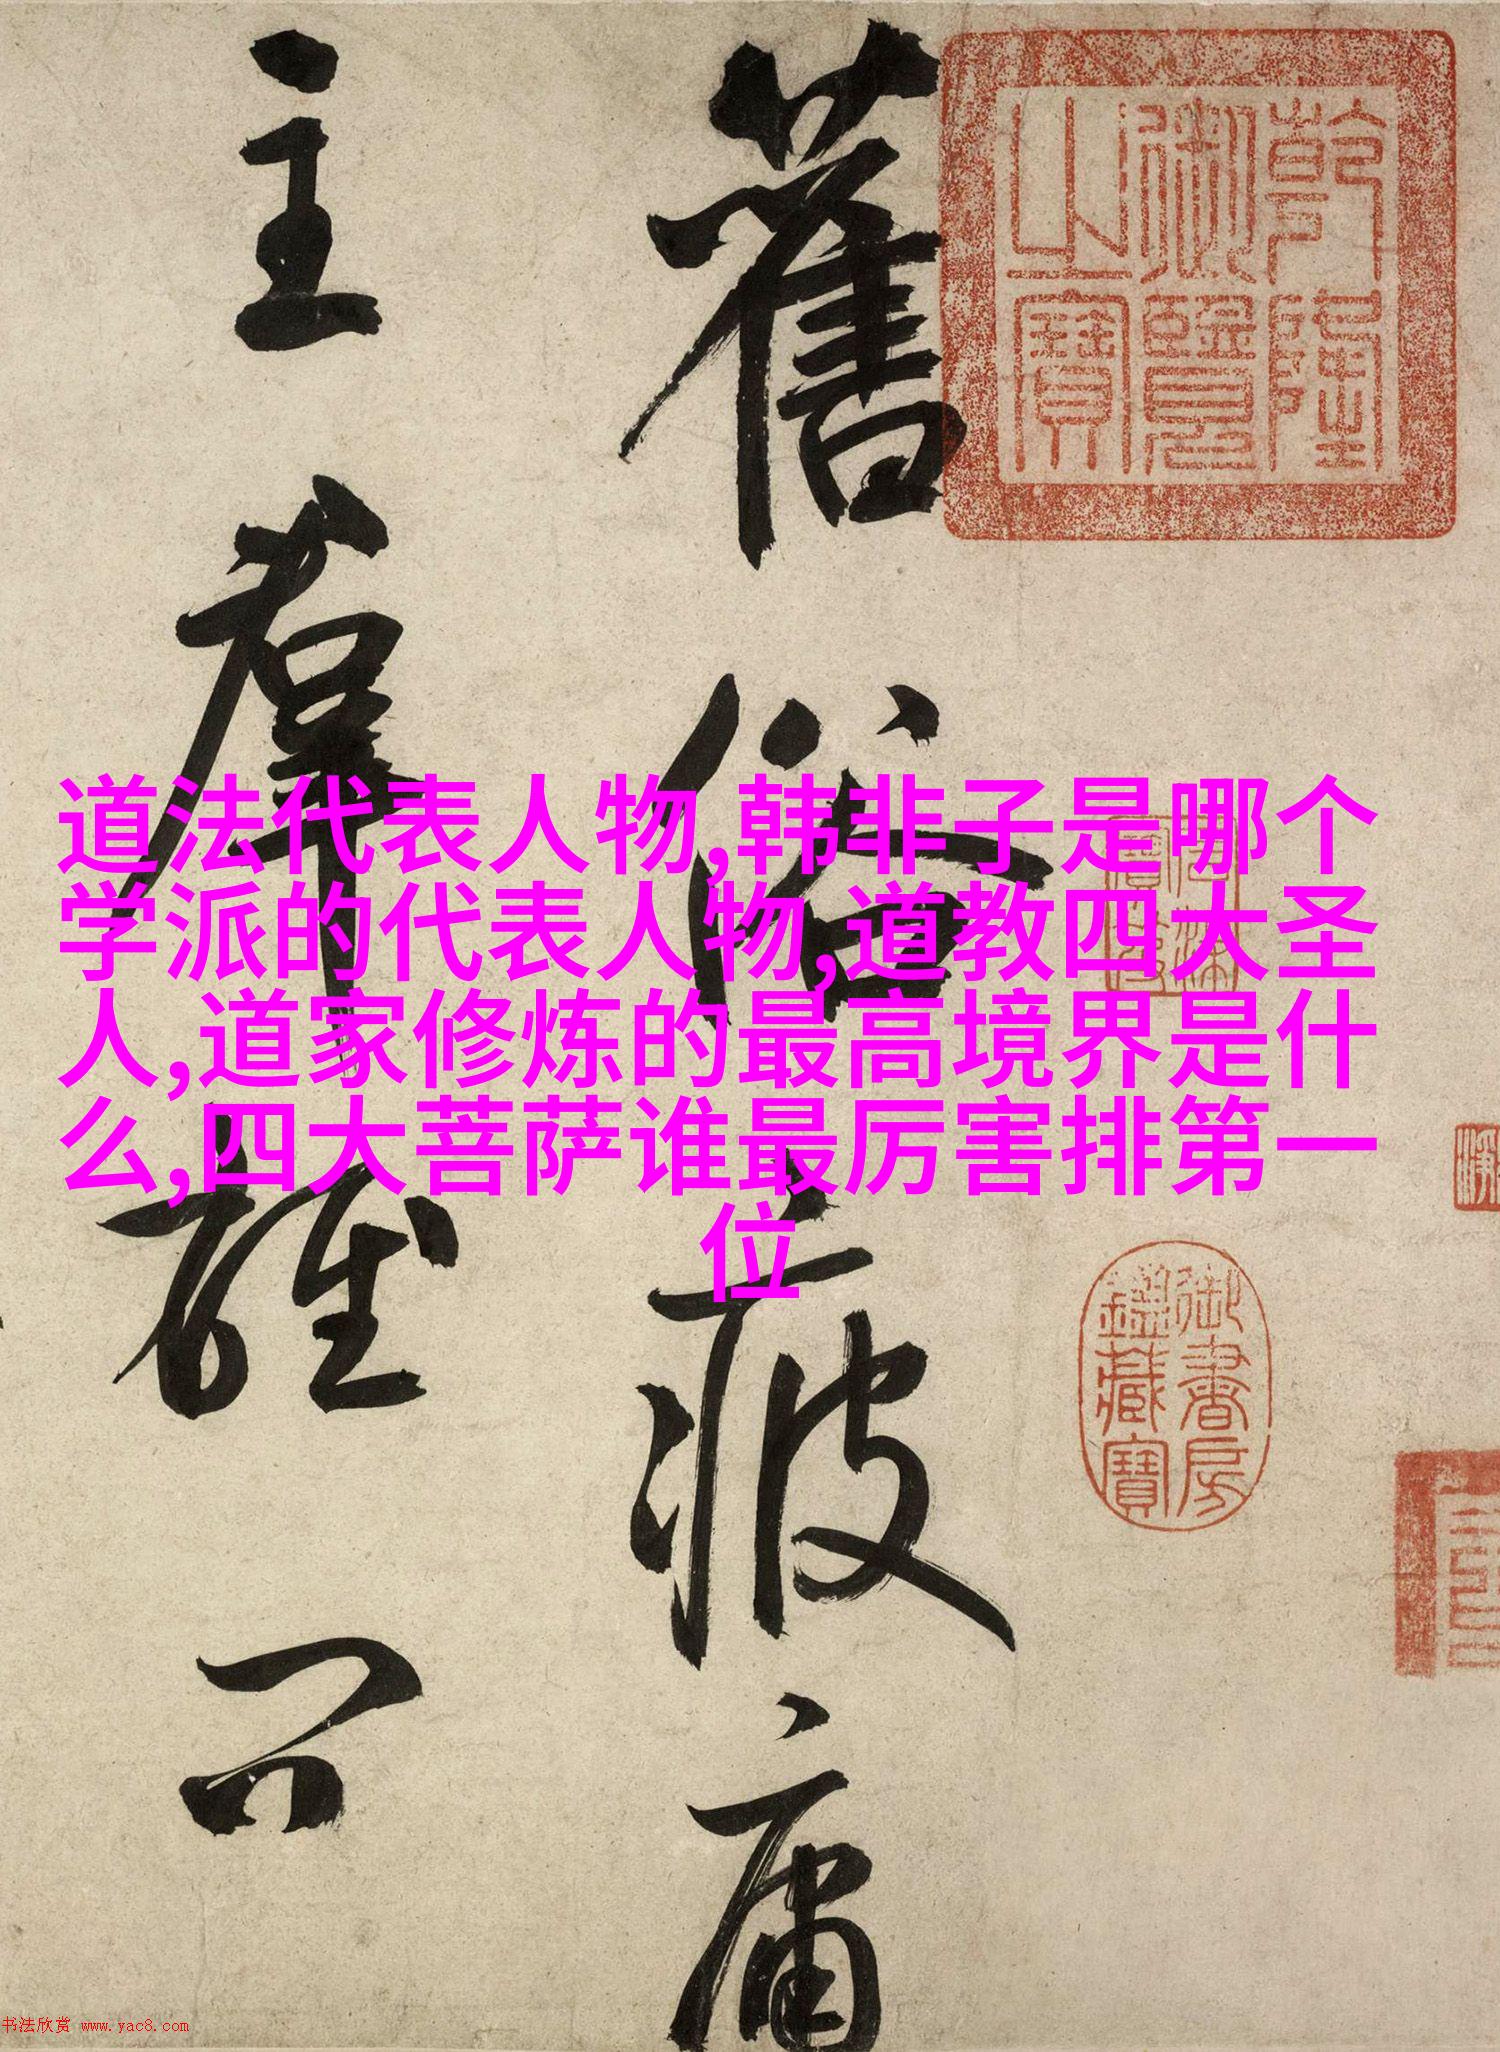 道法代表人物,韩非子是哪个
学派的代表人物,道教四大圣
人,道家修炼的最高境界是什
么,四大菩萨谁最厉害排第一
位
舊俗疲庸
主羣雄只
乾隆
御覽
之寶
御書房
鑑藏寶
书法欣赏 www.yac8.com